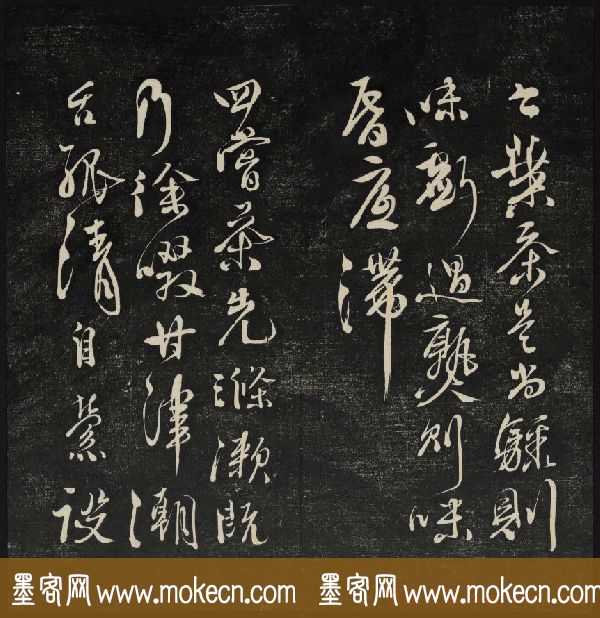 今葉茶是尚驟則
味虧過熟則味
昏底滯
四嘗茶先滌漱既
乃徐啜甘津潮
舌孤清自縈設
墨客网 www.mokecn.com 墨客网 www.mokecn.com